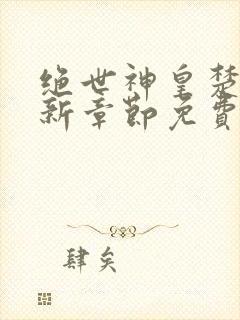 绝世神皇楚
新章節免費
肆矣